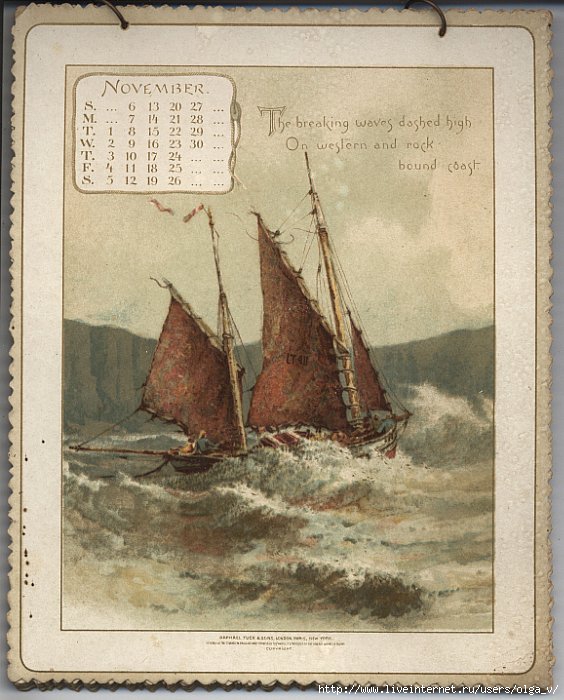 NOVEMBER.
S. ... 6 13 20 27 ...
M. ... 7 14 21 28 ...
T. 1 8 15 22 29 ...
W. 2 9 16 23 30 ...
T. 3 10 17 24 ... ...
F. 4 11 18 25 ... ...
S. 5 12 19 26 ... ...
The breaking waves dashed high
On western and rock
bound coast
RAPHAEL TUCK & SONS, LONDON, PARIS, NEW YORK.
COPYRIGHT.
http://www.liveinternet.ru/users/olga_v/